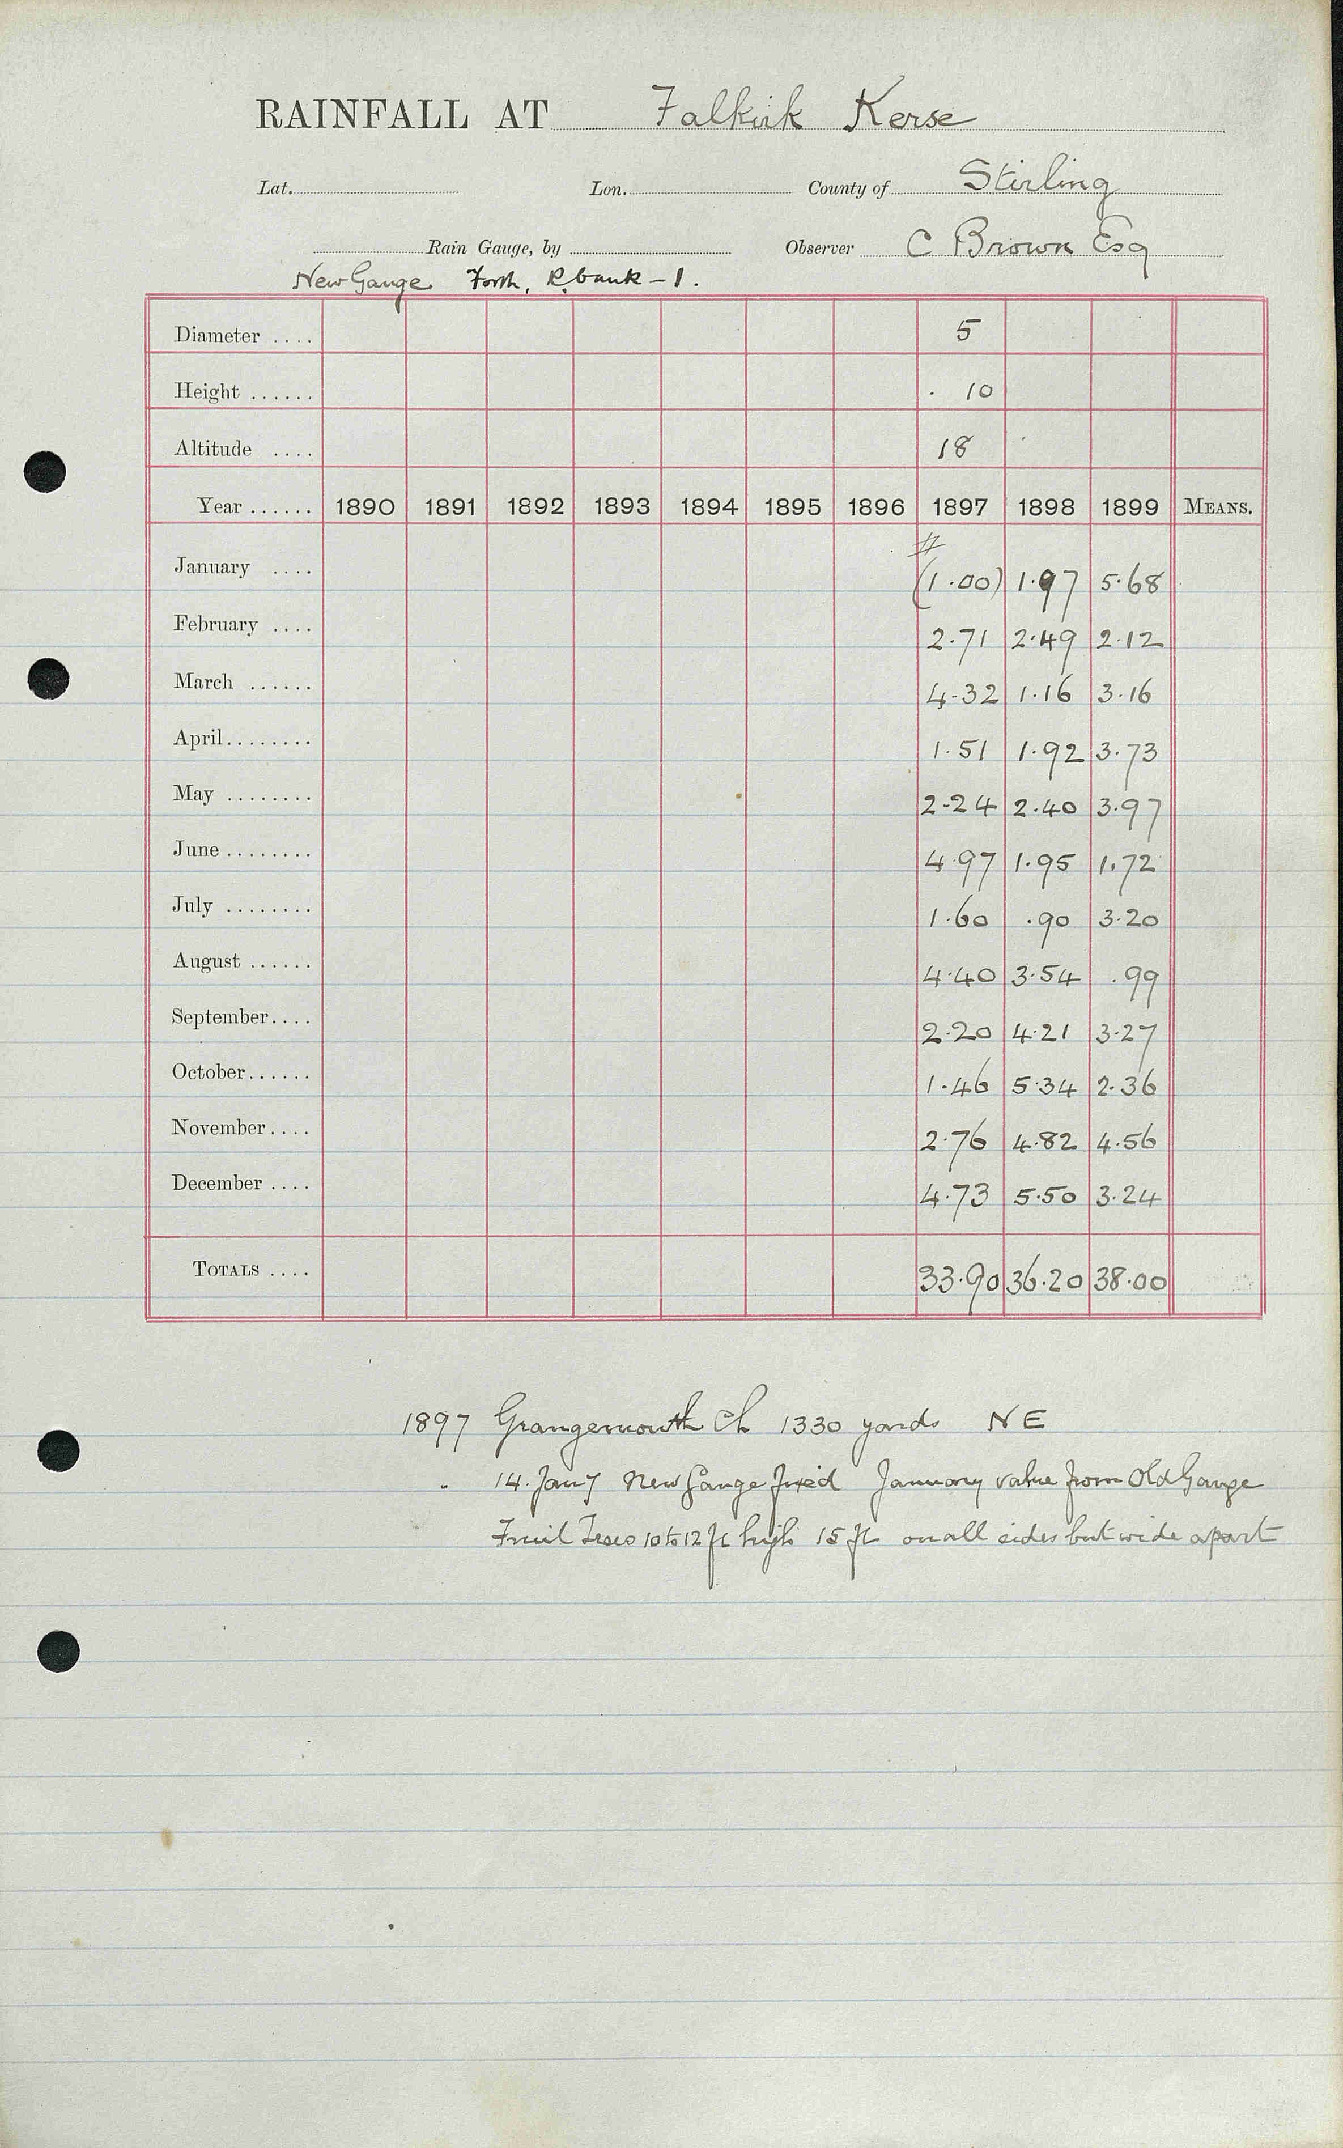 RAINFALL AT Falkirk Kerse
Lat. Lon. County of Stirling
Rain Gauge, by Observer C Brown Esq
New Gauge Forth, R. bank - 1.
Diameter .... 5
Height ...... 10
Altitude .... 18
Year ...... 1890 1891 1892 1893 1894 1895 1896 1897 1898 1899 MEANS.
#
January .... (1.00) 1.97 5.68
February .... 2.71 2.49 2.12
March ...... 4.32 1.16 3.16
April........ 1.51 1.92 3.73
May ........ 2.24 2.40 3.97
June ........ 4.97 1.95 1.72
July ........ 1.60 .90 3.20
August ...... 4.40 3.54 .99
September.... 2.20 4.21 3.27
October...... 1.46 5.34 2.36
November.... 2.76 4.82 4.56
December .... 4.73 5.50 3.24
TOTALS .... 33.90 36.20 38.00
1897 Grangemouth Ch 1330 yards NE
" 14. Jany New Gauge fixed January value from Old Gauge
Fruit Trees 10 to 12 ft high 15 ft on all sides but wide apart